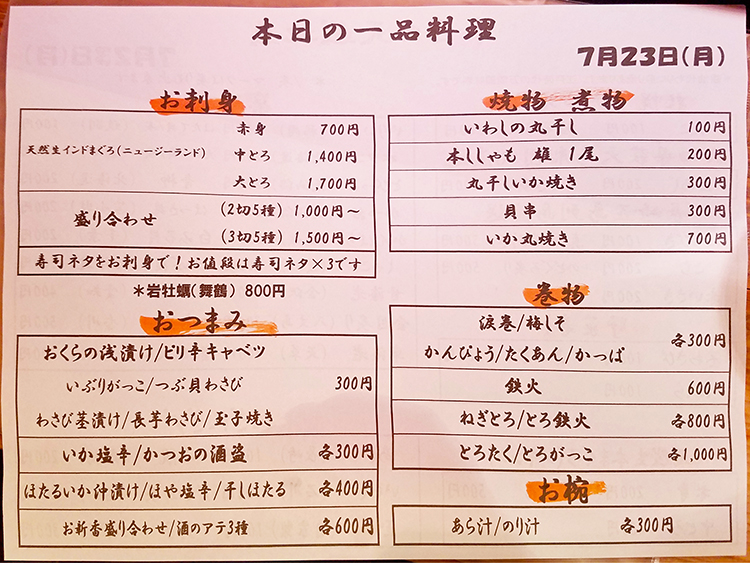 本日の一品料理
7月23日(月)
お刺身
天然生インドまぐろ(ニュージーランド)
赤身 700円
中とろ 1,400円
大とろ 1,700円
盛り合わせ
(2切5種) 1,000円～
(3切5種) 1,500円～
寿司ネタをお刺身で!お値段は寿司ネタ×3です
*岩牡蠣(舞鶴) 800円
おつまみ
おくらの浅漬け/ピリ辛キャベツ
いぶりがっこ/つぶ貝わさび 300円
わさび茎漬け/長芋わさび/玉子焼き
いか塩辛/かつおの酒盗 各300円
ほたるいか沖漬け/ほや塩辛/干しほたる 各400円
お新香盛り合わせ/酒のアテ3種 各600円
焼物 煮物
いわしの丸干し 100円
本ししゃも 雄 1尾 200円
丸干しいか焼き 300円
貝串 300円
いか丸焼き 700円
巻物
涙巻/梅しそ
かんぴょう/たくあん/かっぱ
各300円
鉄火 600円
ねぎとろ/とろ鉄火 各800円
とろたく/とろがっこ 各1,000円
お椀
あら汁/のり汁 各300円